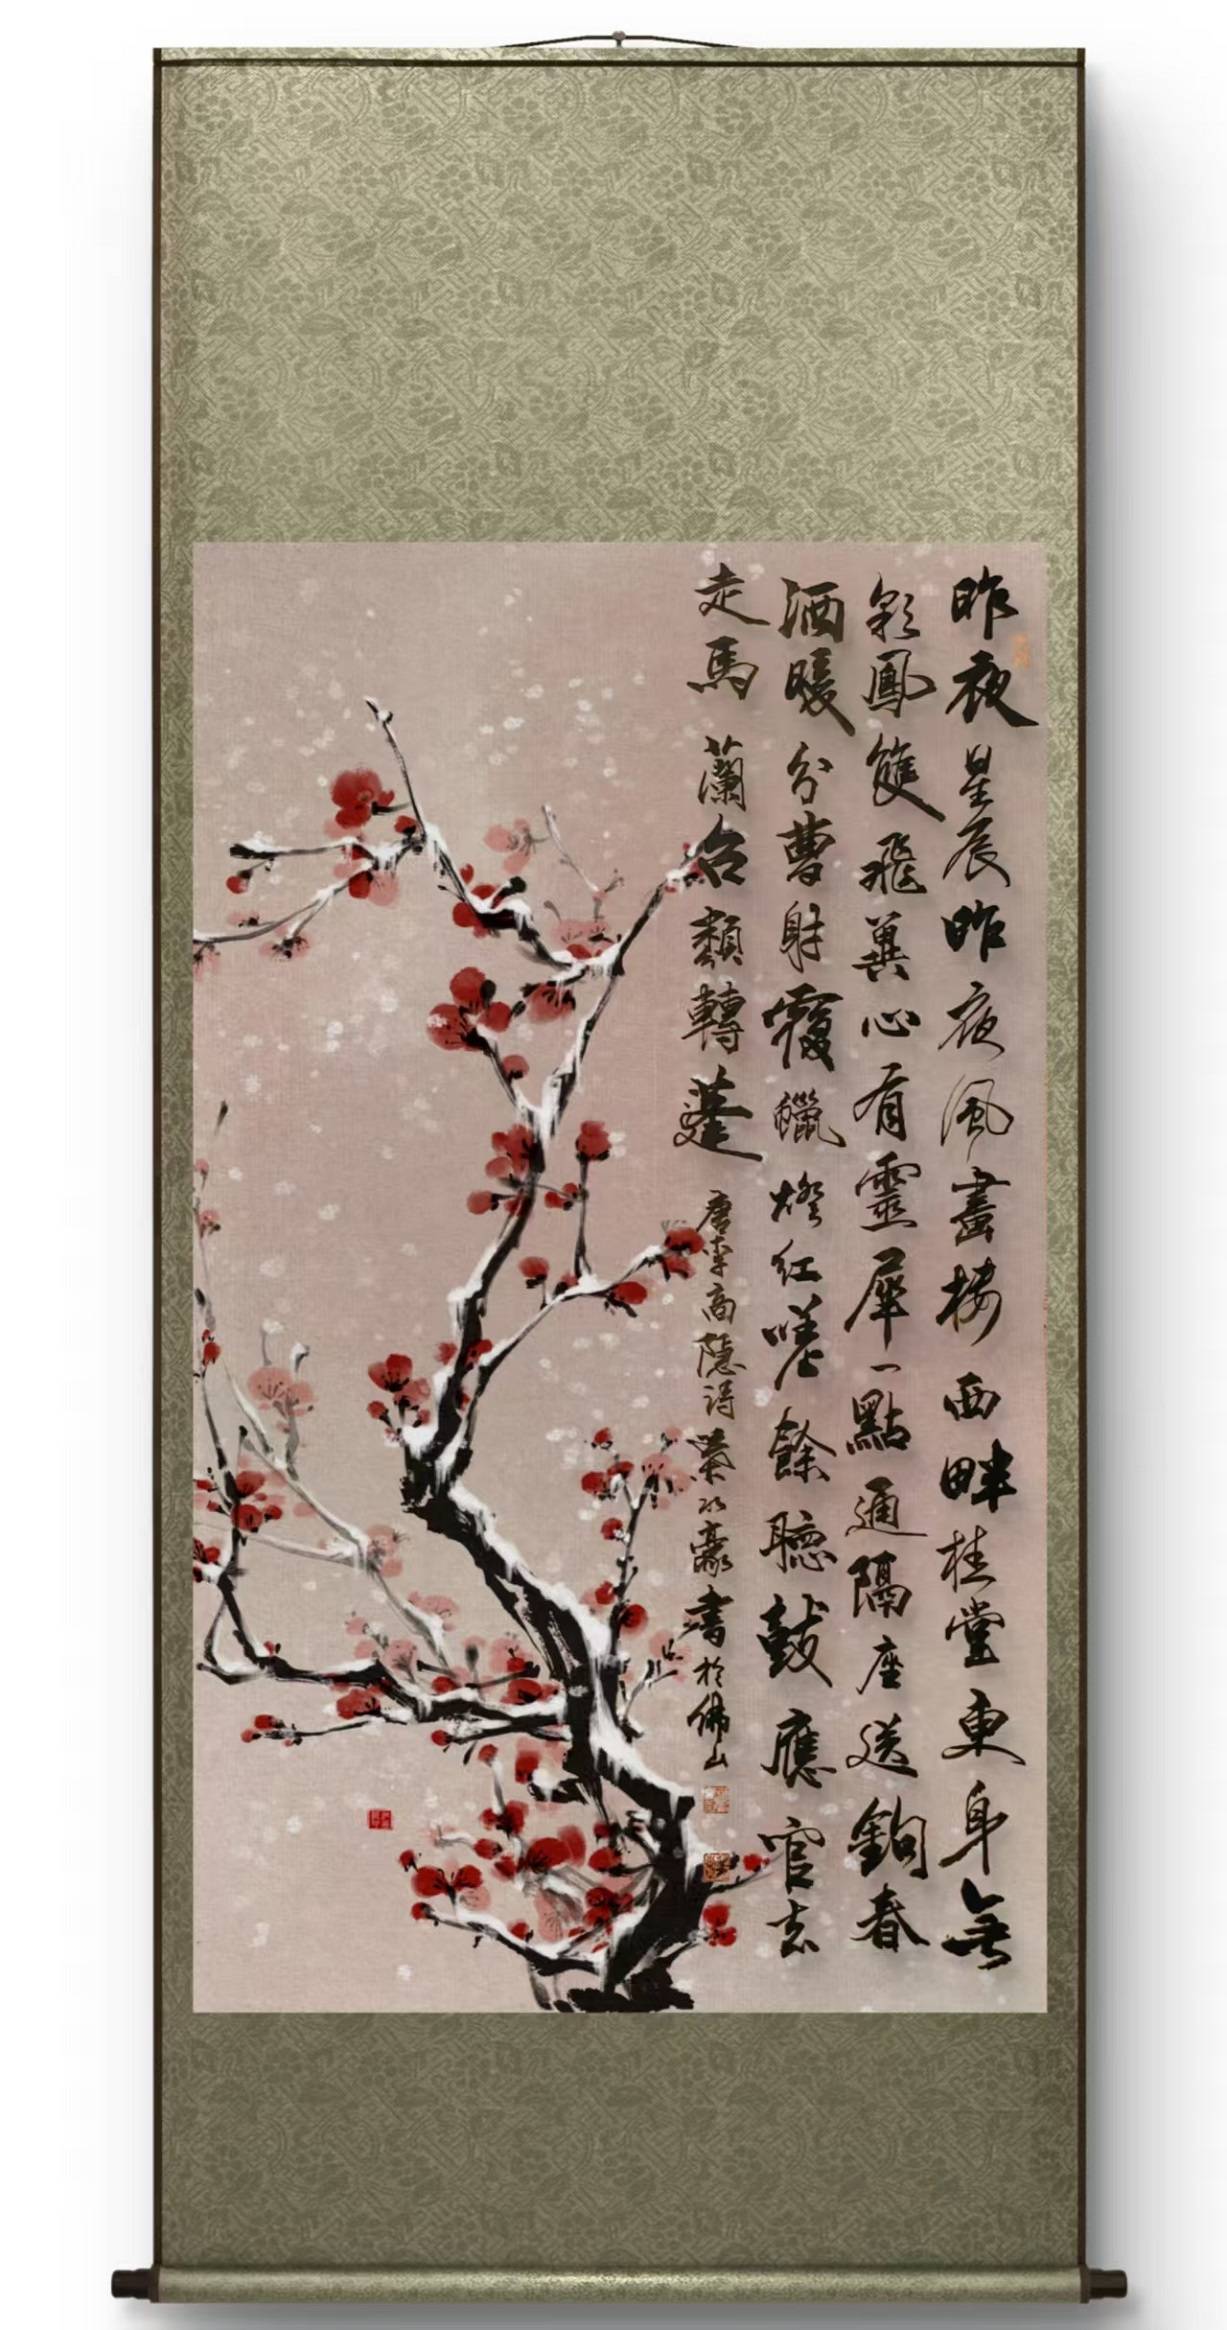 昨夜星辰昨夜風畫樓西畔桂堂東身無
彩鳳雙飛翼心有靈犀一點通隔座送鉤春
酒暖分曹射覆蠟燈紅嗟餘聽鼓應官去
走馬蘭台類轉蓬
唐李商隱詩 豪書於佛山